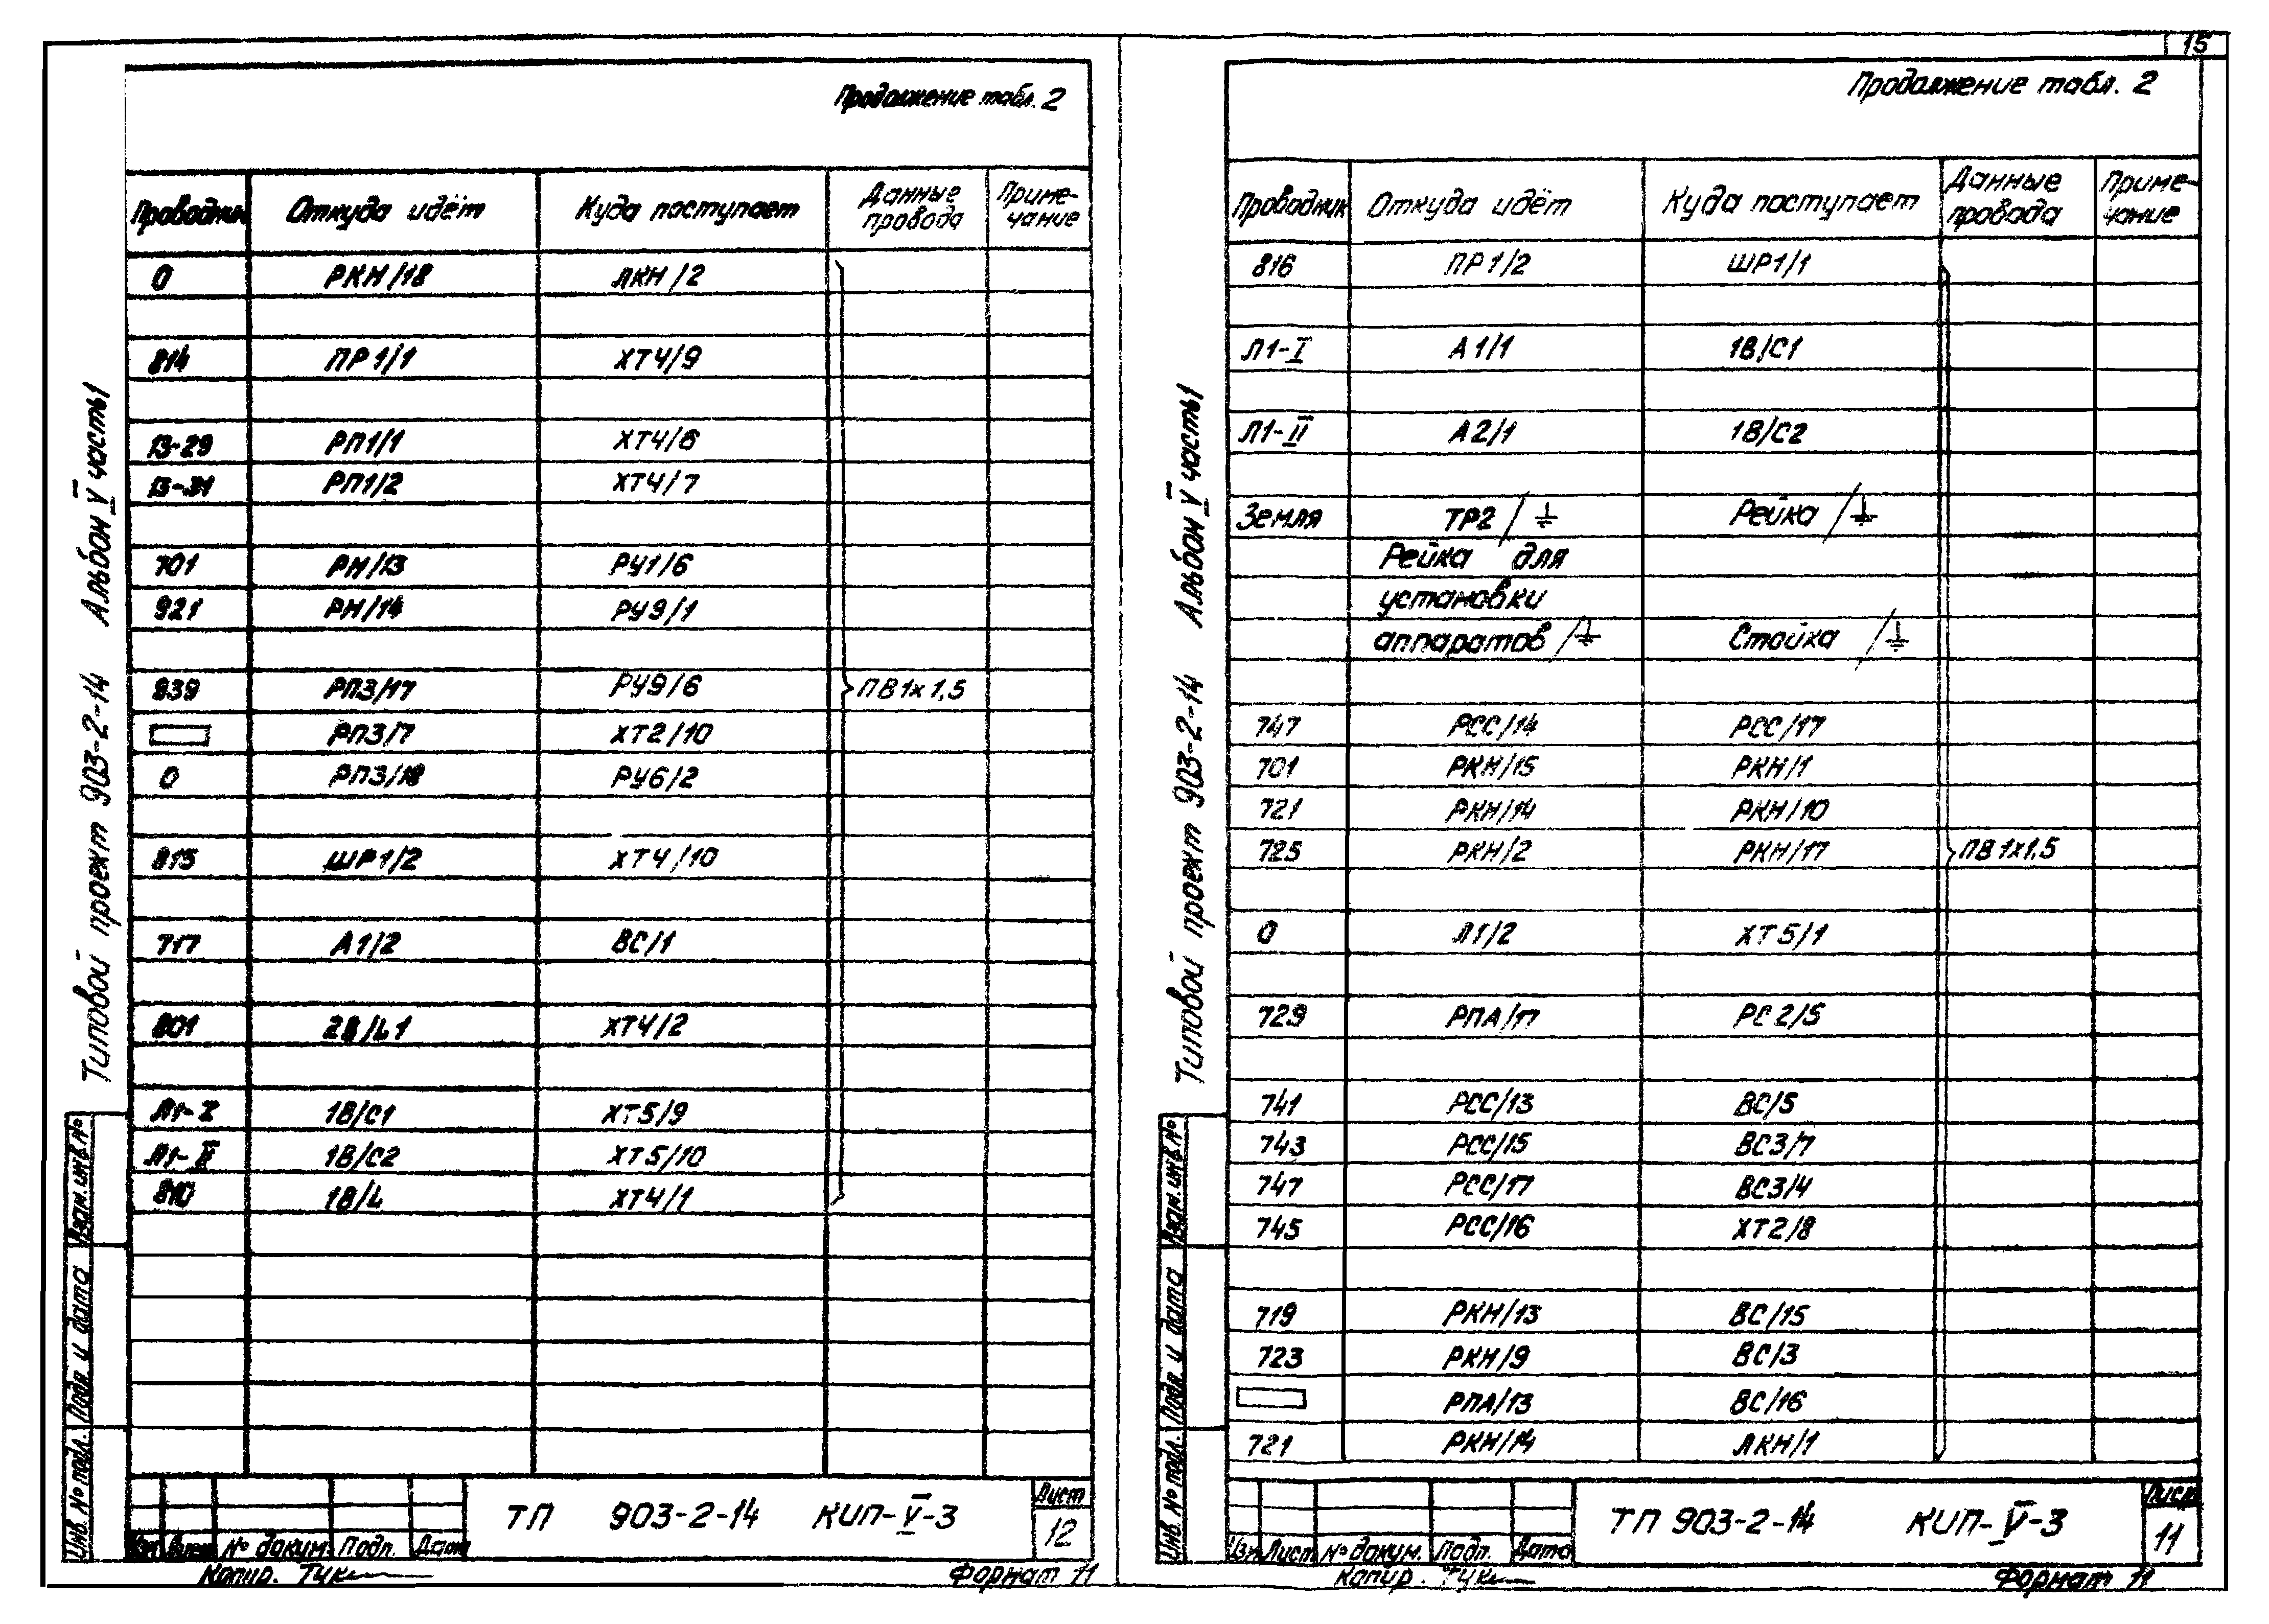 15
Продолжение табл. 2
Проводник Откуда идёт Куда поступает Данные провода Приме-чание
0 РКН/18 ЛКН/2
814 ПР1/1 ХТ4/9
13-29 РП1/1 ХТ4/6
13-31 РП1/2 ХТ4/7
701 РН/13 РУ1/6
921 РН/14 РУ9/1
939 РП3/17 РУ9/6 ПВ1х1,5
РП3/7 ХТ2/10
0 РП3/18 РУ6/2
815 ШР1/2 ХТ4/10
717 А1/2 ВС/1
801 2В/L1 ХТ4/2
Л1-I 1В/С1 ХТ5/9
Л1-II 1В/С2 ХТ5/10
810 1В/L ХТ4/1
Типовой проект 903-2-14 Альбом V часть1
Взам. инв. №
Подп. и дата
Инв. № подл.
Изм Лист № докум. Подп. Дата
ТП 903-2-14 КИП-V-3
Лист
12
Копир. Тук
Формат 11
Продолжение табл. 2
Проводник Откуда идёт Куда поступает Данные провода Приме-чание
816 ПР1/2 ШР1/1
Л1-I А1/1 1В/С1
Л1-II А2/1 1В/С2
Земля ТР2/⏚ Рейка/⏚
Рейка для
установки
аппаратов/⏚ Стойка/⏚
747 РСС/14 РСС/17
701 РКН/15 РКН/1
721 РКН/14 РКН/10
725 РКН/2 РКН/17 ПВ1х1,5
0 Л1/2 ХТ5/1
729 РПА/17 РС2/5
741 РСС/13 ВС/5
743 РСС/15 ВС3/7
747 РСС/17 ВС3/4
745 РСС/16 ХТ2/8
719 РКН/13 ВС/15
723 РКН/9 ВС/3
РПА/13 ВС/16
721 РКН/14 ЛКН/1
Типовой проект 903-2-14 Альбом V часть1
Взам. инв. №
Подп. и дата
Инв. № подл.
Изм Лист № докум. Подп. Дата
ТП 903-2-14 КИП-V-3
Лист
11
Копир. Тук
Формат 11